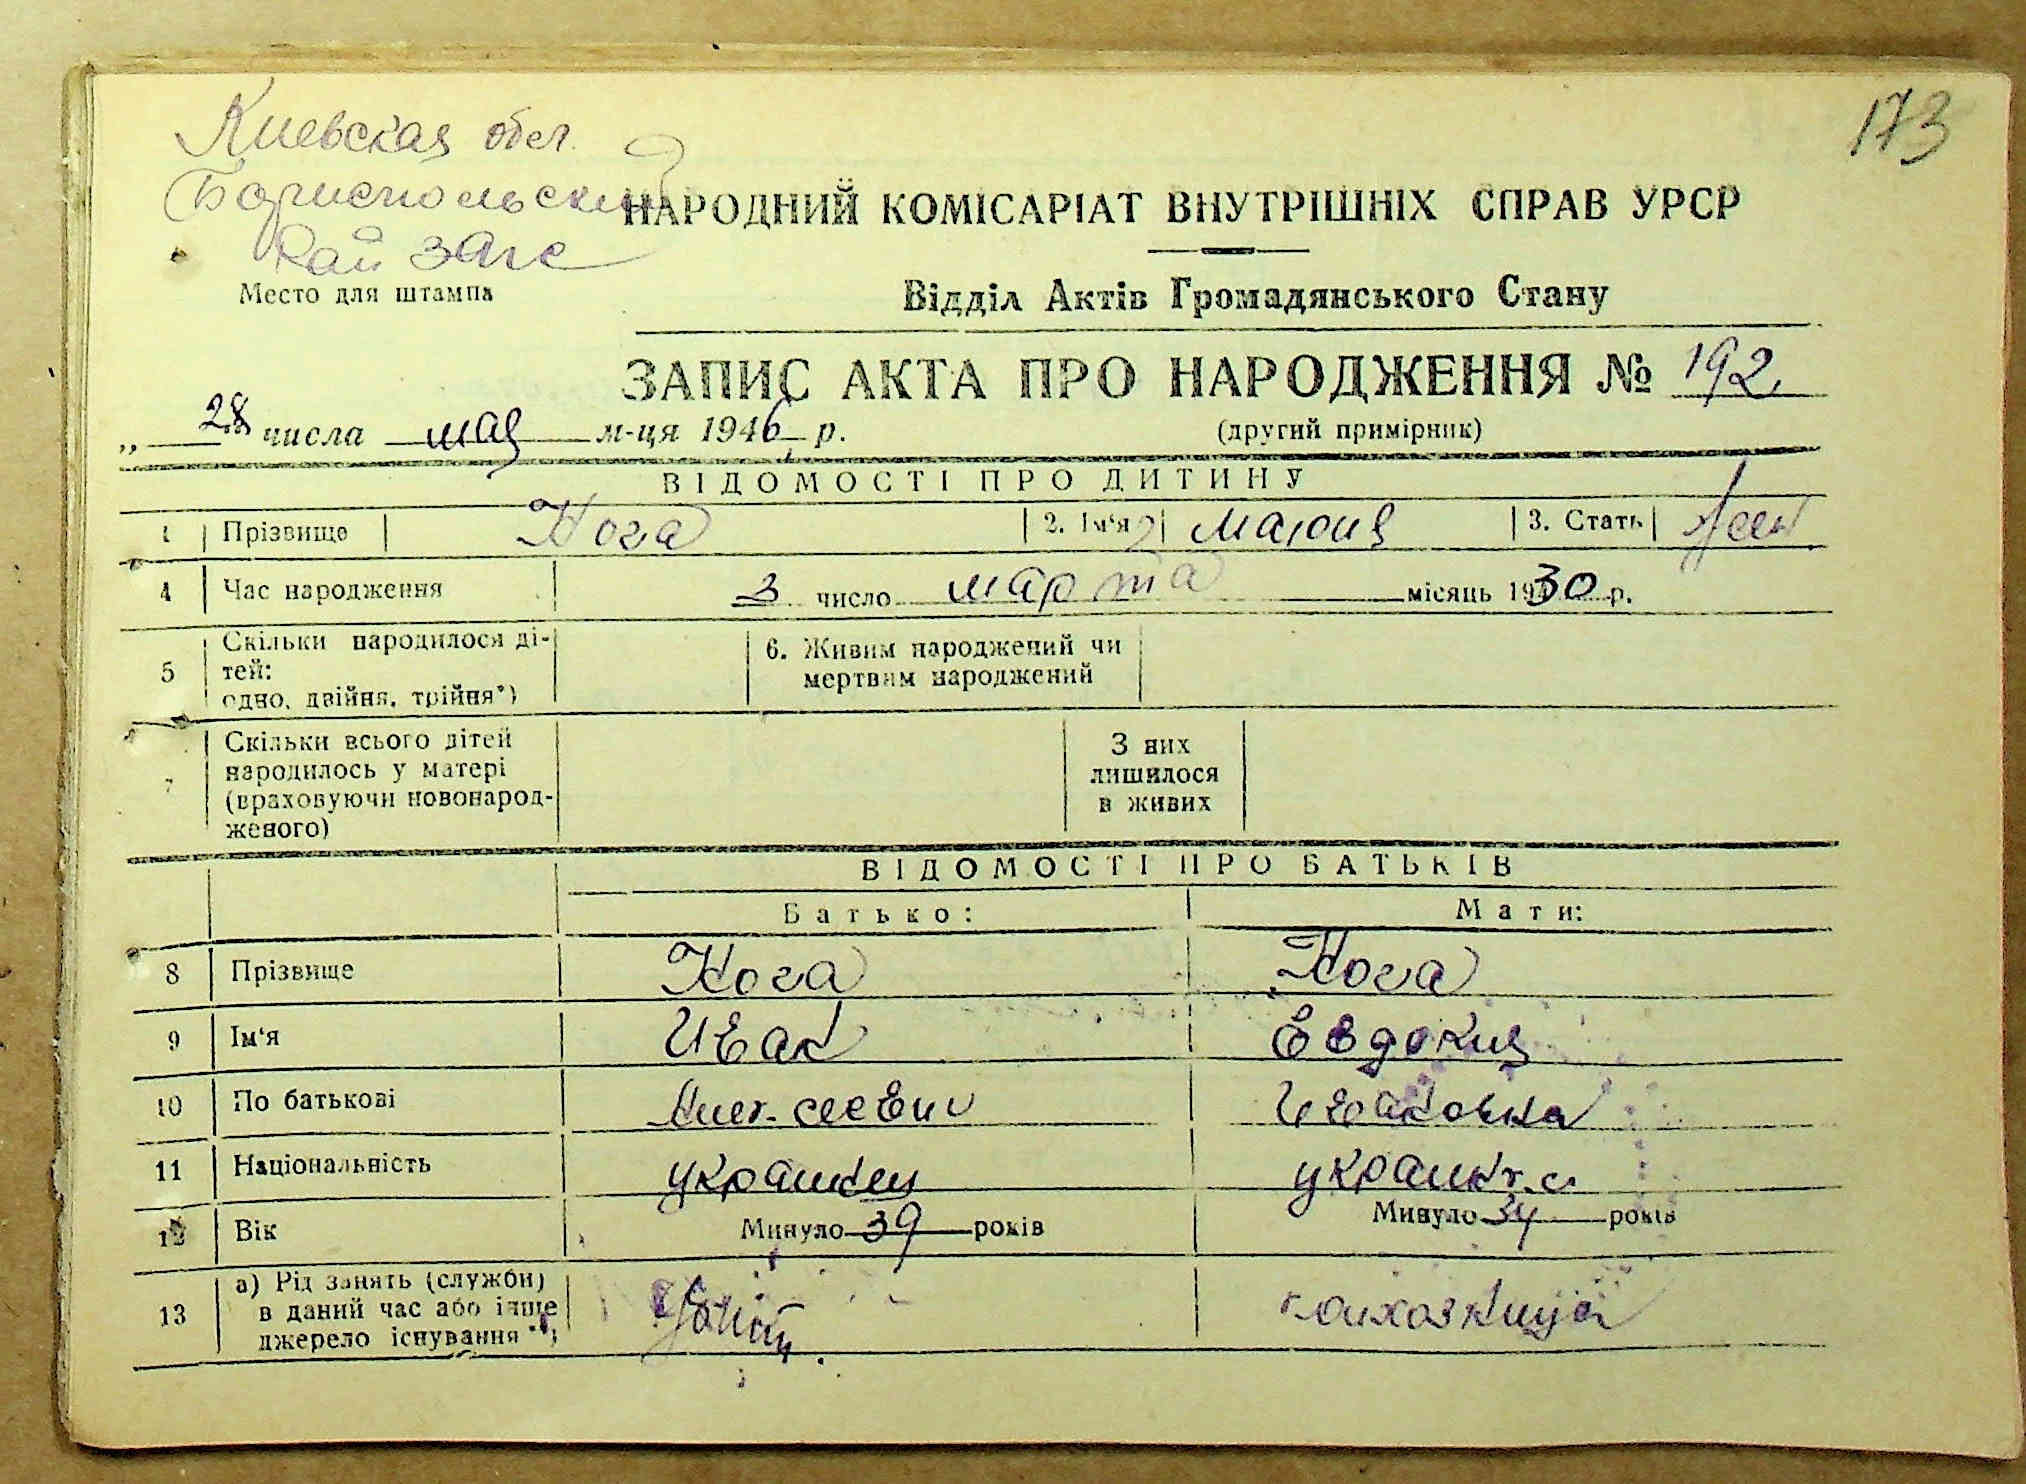 173
Киевская обл.
Бориспольский
Рай загс
Место для штампа
НАРОДНИЙ КОМІСАРІАТ ВНУТРІШНІХ СПРАВ УРСР
Відділ Актів Громадянського Стану
ЗАПИС АКТА ПРО НАРОДЖЕННЯ № 192
„ 28 числа мая м-ця 1946 р.
(другий примірник)
ВІДОМОСТІ ПРО ДИТИНУ
1 Прізвище Нога 2. Ім'я Мария 3. Стать жен
4 Час народження 3 число марта місяць 1930 р.
5 Скільки народилося ді-
тей:
одно, двійня, трійня*)
6. Живим народжений чи
мертвим народжений
7 Скільки всього дітей
народилось у матері
(враховуючи новонарод-
женого)
З них
лишилося
в живих
ВІДОМОСТІ ПРО БАТЬКІВ
Батько: Мати:
8 Прізвище Нога Нога
9 Ім'я Иван Евдокия
10 По батькові Алексеевич Ивановна
11 Національність украинец украинка
12 Вік Минуло 39 років Минуло 34 років
13 а) Рід занять (служби)
в даний час або інше
джерело існування **)
колхозница